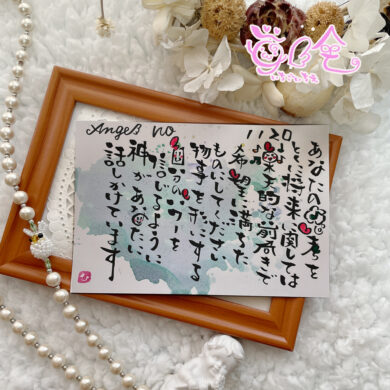 Angels no 1120
あなたの思考を
とくに将来に関しては
より楽天的な前向きで
希望に満ちた
ものにしてください
物事を形にする
自分のパワーを
信じるように
神があなたに
話しかけています